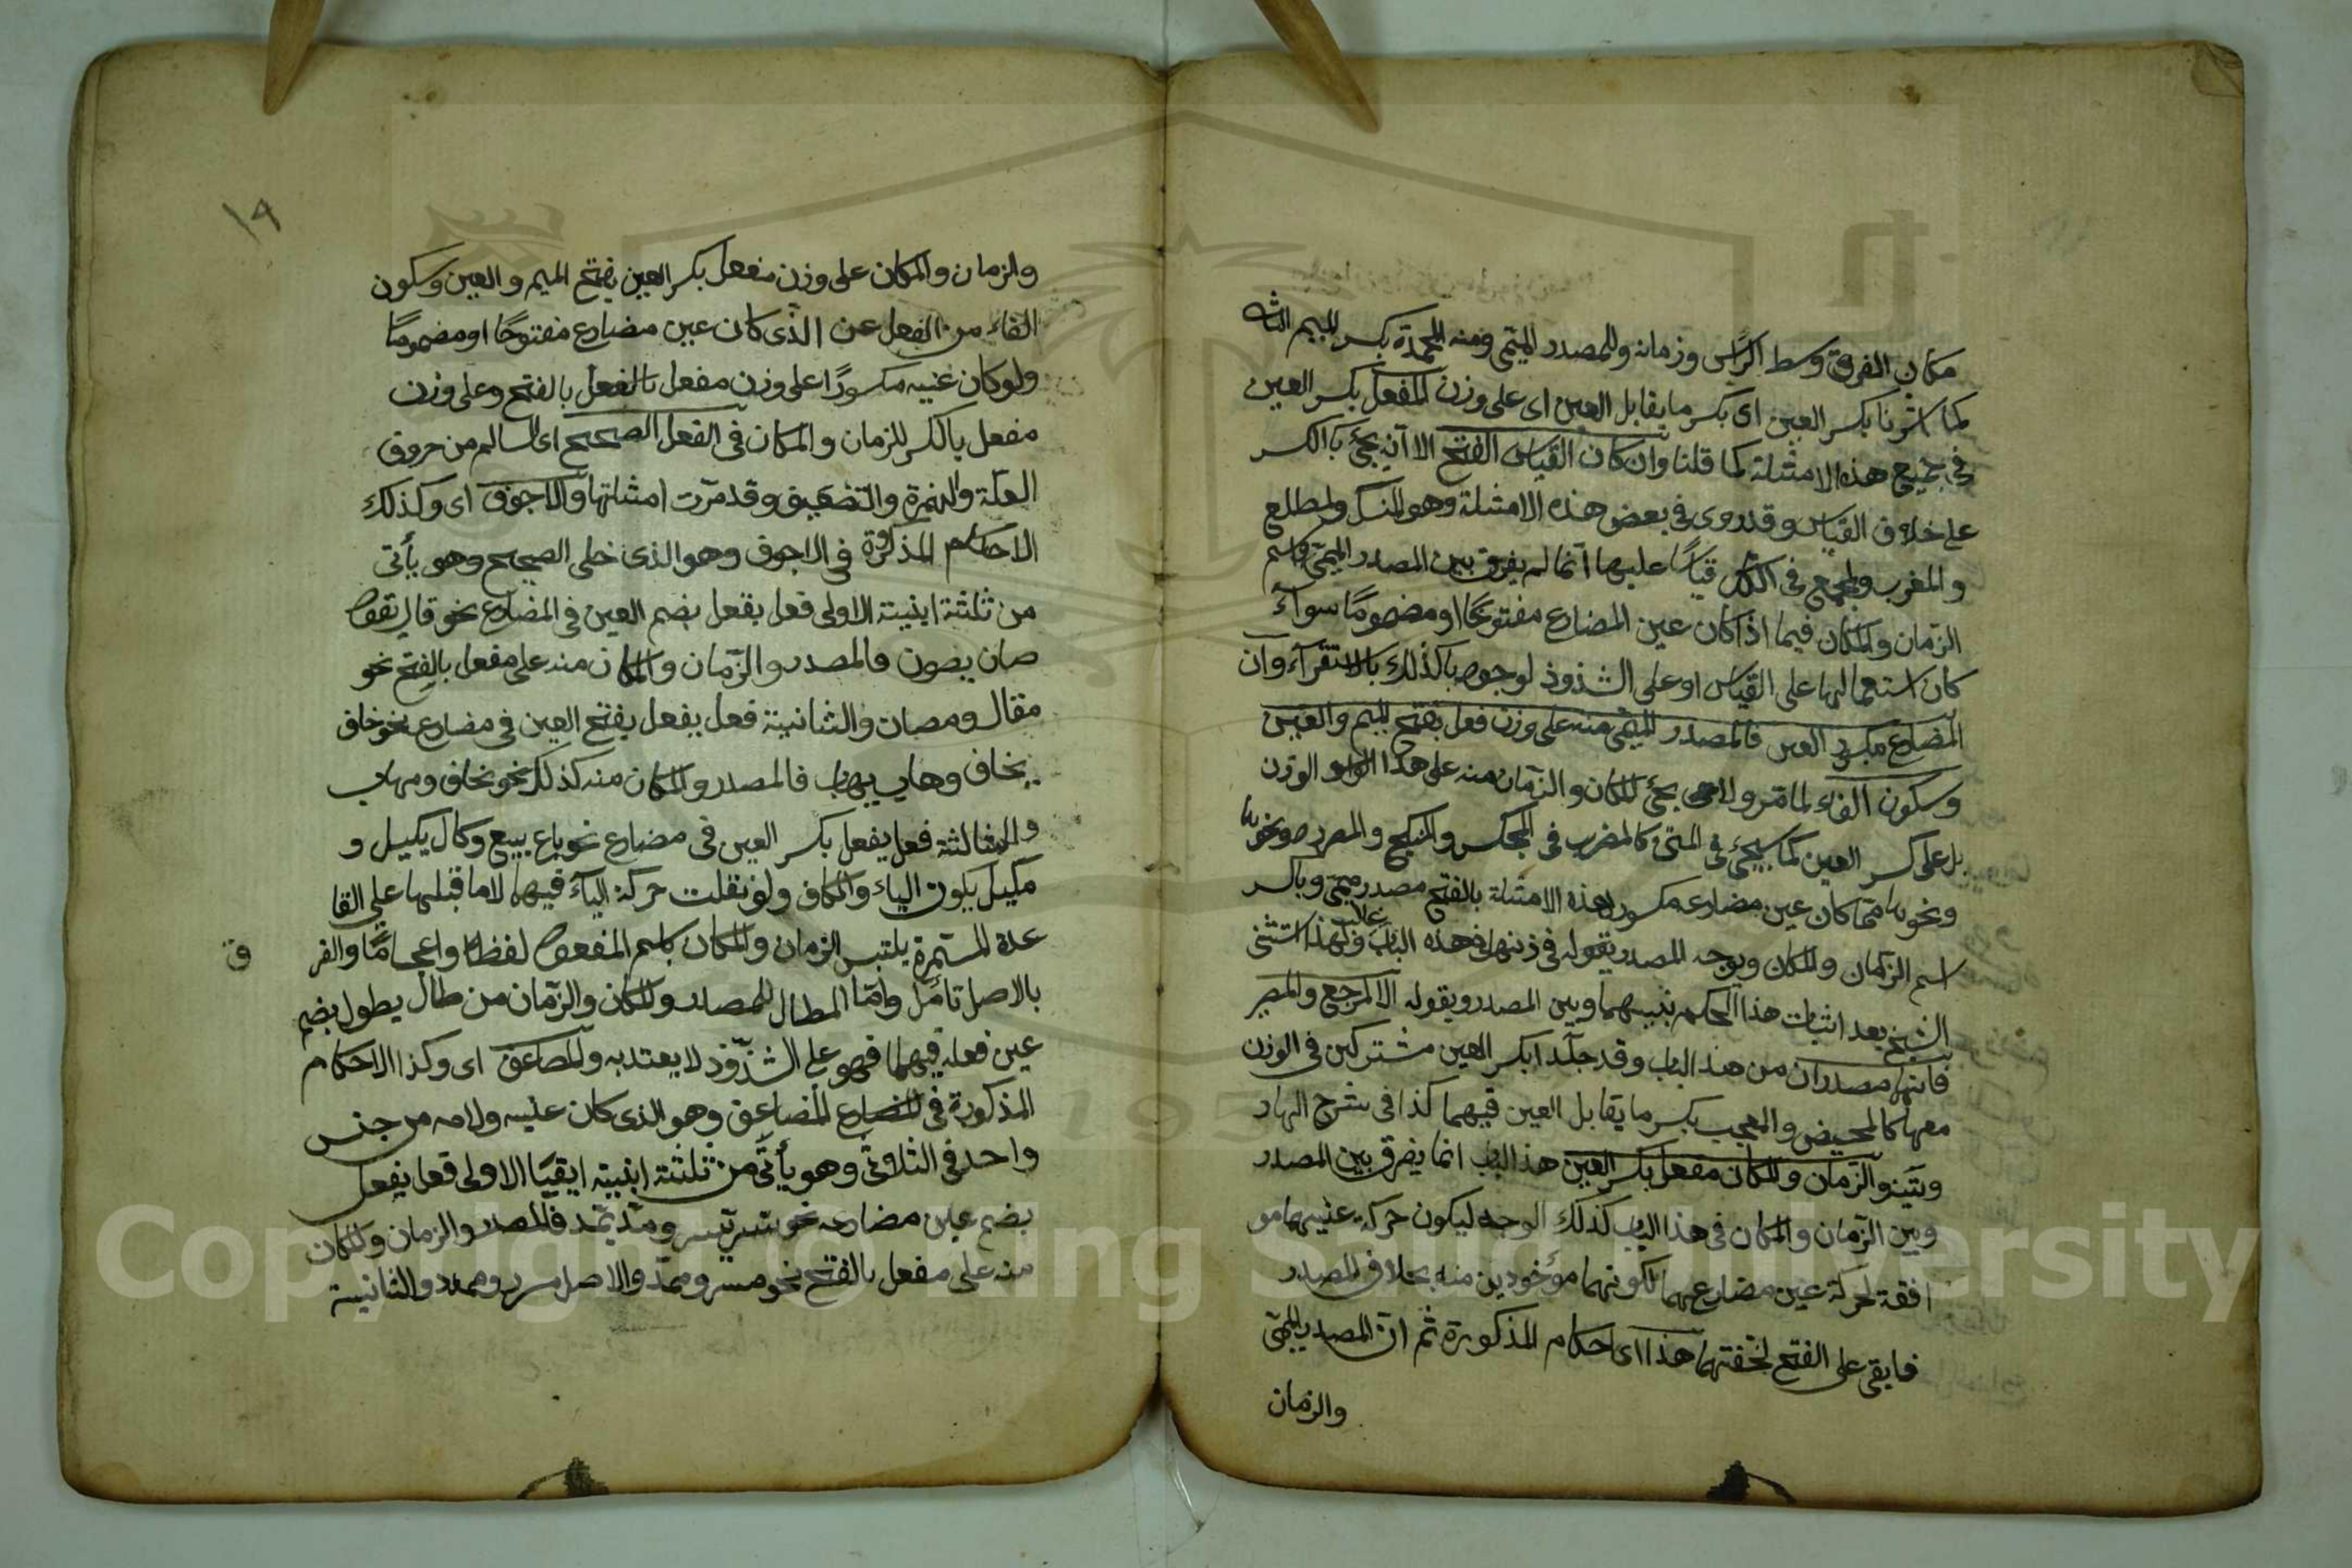 مكان الفرق وسط الرأس وزمانه وللمصدر الميمى ومنه المحمدة بكسر الميم الثانية
كما اشرنا بكسر العين اى بكسر ما يقابل العين اى على وزن المفعل بكسر العين
فى جميع هذه الامثلة كما قلنا وان كان القياس الفتح الا انه يجئ بالكسر
على خلاف القياس وقد روى فى بعض هذه الامثلة وهو المنسك والمطلع
والمغرب والمجمع فى الكل قياسًا عليها انما لم يفرق بين المصدر الميمى واسم
الزمان والمكان فيما اذا كان عين المضارع مفتوحًا او مضمومًا سوآء
كان استعمالها على القياس او على الشذوذ لوجوه كذلك بالاستقرآء وان
المضارع مكسور العين فالمصدر الميمى منه على وزن فعل بفتح الميم والعين
وسكون الفاء لما مر ولا يجئ للمكان والزمان منه على هذا الوزن
بل على كسر العين كما سيجئ فى المتن كالمضرب فى المجلس والمنكح والمصدر ونحوها
ونحوها مما كان عين مضارعه مكسور لهذه الامثلة بالفتح مصدر ميمى وبالكسر
اسم الزمان والمكان ويوجه المصدر بقوله فى هذه الباب غالب ولهذا استثنى
الشيخ بعد اثبات هذا الحكم بينهما وبين المصدر وبقوله الا المرجع والمصير
فانهما مصدران من هذا الباب وقد جآءا بكسر العين مشتركين فى الوزن
معها كالمحيض والمعجب بكسر ما يقابل العين فيهما كذا فى شرح الهار
والزمان والمكان مفعل بكسر العين هذا الباب انما يفرق بين المصدر
وبين الزمان والمكان فى هذا الباب كذلك الوجه ليكون حركة عينهما مو
افقة لحركة عين مضارعهما لكونهما مؤخوذين منه بخلاف المصدر
فابقى على الفتح لخفتها هذا اى احكام المذكورة ثم ان المصدر الميمى
والزمان
١٩
والزمان والمكان على وزن مفعل بكسر العين بفتح الميم والعين وسكون
الفاء من الفعل عن الذى كان عين مضارع مفتوحًا او مضمومًا
ولو كان عنيه مكسورًا على وزن مفعل بالفعل بالفتح وعلى وزن
مفعل بالكسر للزمان والمكان فى الفعل الصحيح اى السالم من حروف
العلة والهمزة والتضعيف وقد مرّت امثلتها والاجوف اى وكذلك
الاحكام المذكورة فى الاجوف وهو الذى خلى الصحيح وهو يأتى
من ثلثة ابنية الاولى فعل يفعل بضم العين فى المضارع نحو قال يقول
صان يصون فالمصدر والزمان والمكان منه على مفعل بالفتح نحو
مقال ومصان والثانية فعل يفعل يفتح العين فى مضارع نحو خاف
يخاف وهاب يهاب فالمصدر والمكان منه كذلك نحو مخاف ومهاب
والثالثة فعل يفعل بكسر العين فى مضارع نحو باع يبيع وكال يكيل و
مكيل بكون الياء والكاف ولو نقلت حركة اليآء فيهما لاما قبلها على القا
عدة المستمرة يلتبس الزمان والمكان باسم المفعول لفظا واعجامًا والفر
ق
بالاصل تأمل وامّا المطال للمصدر والمكان والزمان من طال يطول بضم
عين فعله فيهما فهو على الشذوذ لا يعتد به والمضاعف اى وكذا الاحكام
المذكورة فى المضارع المضاعف وهو الذى كان عليه ولامه من جنس
واحد فى الثلاثى وهو يأتى من ثلثة ابنية ايضًا الاولى فعل يفعل
بضم عين مضارعه نحو سرّ يسر ومدّ يمد فالمصدر والزمان والمكان
منه على مفعل بالفتح نحو مسر وممد والاصل مسرر وممدد والثانية
Copyright © King Saud University
195